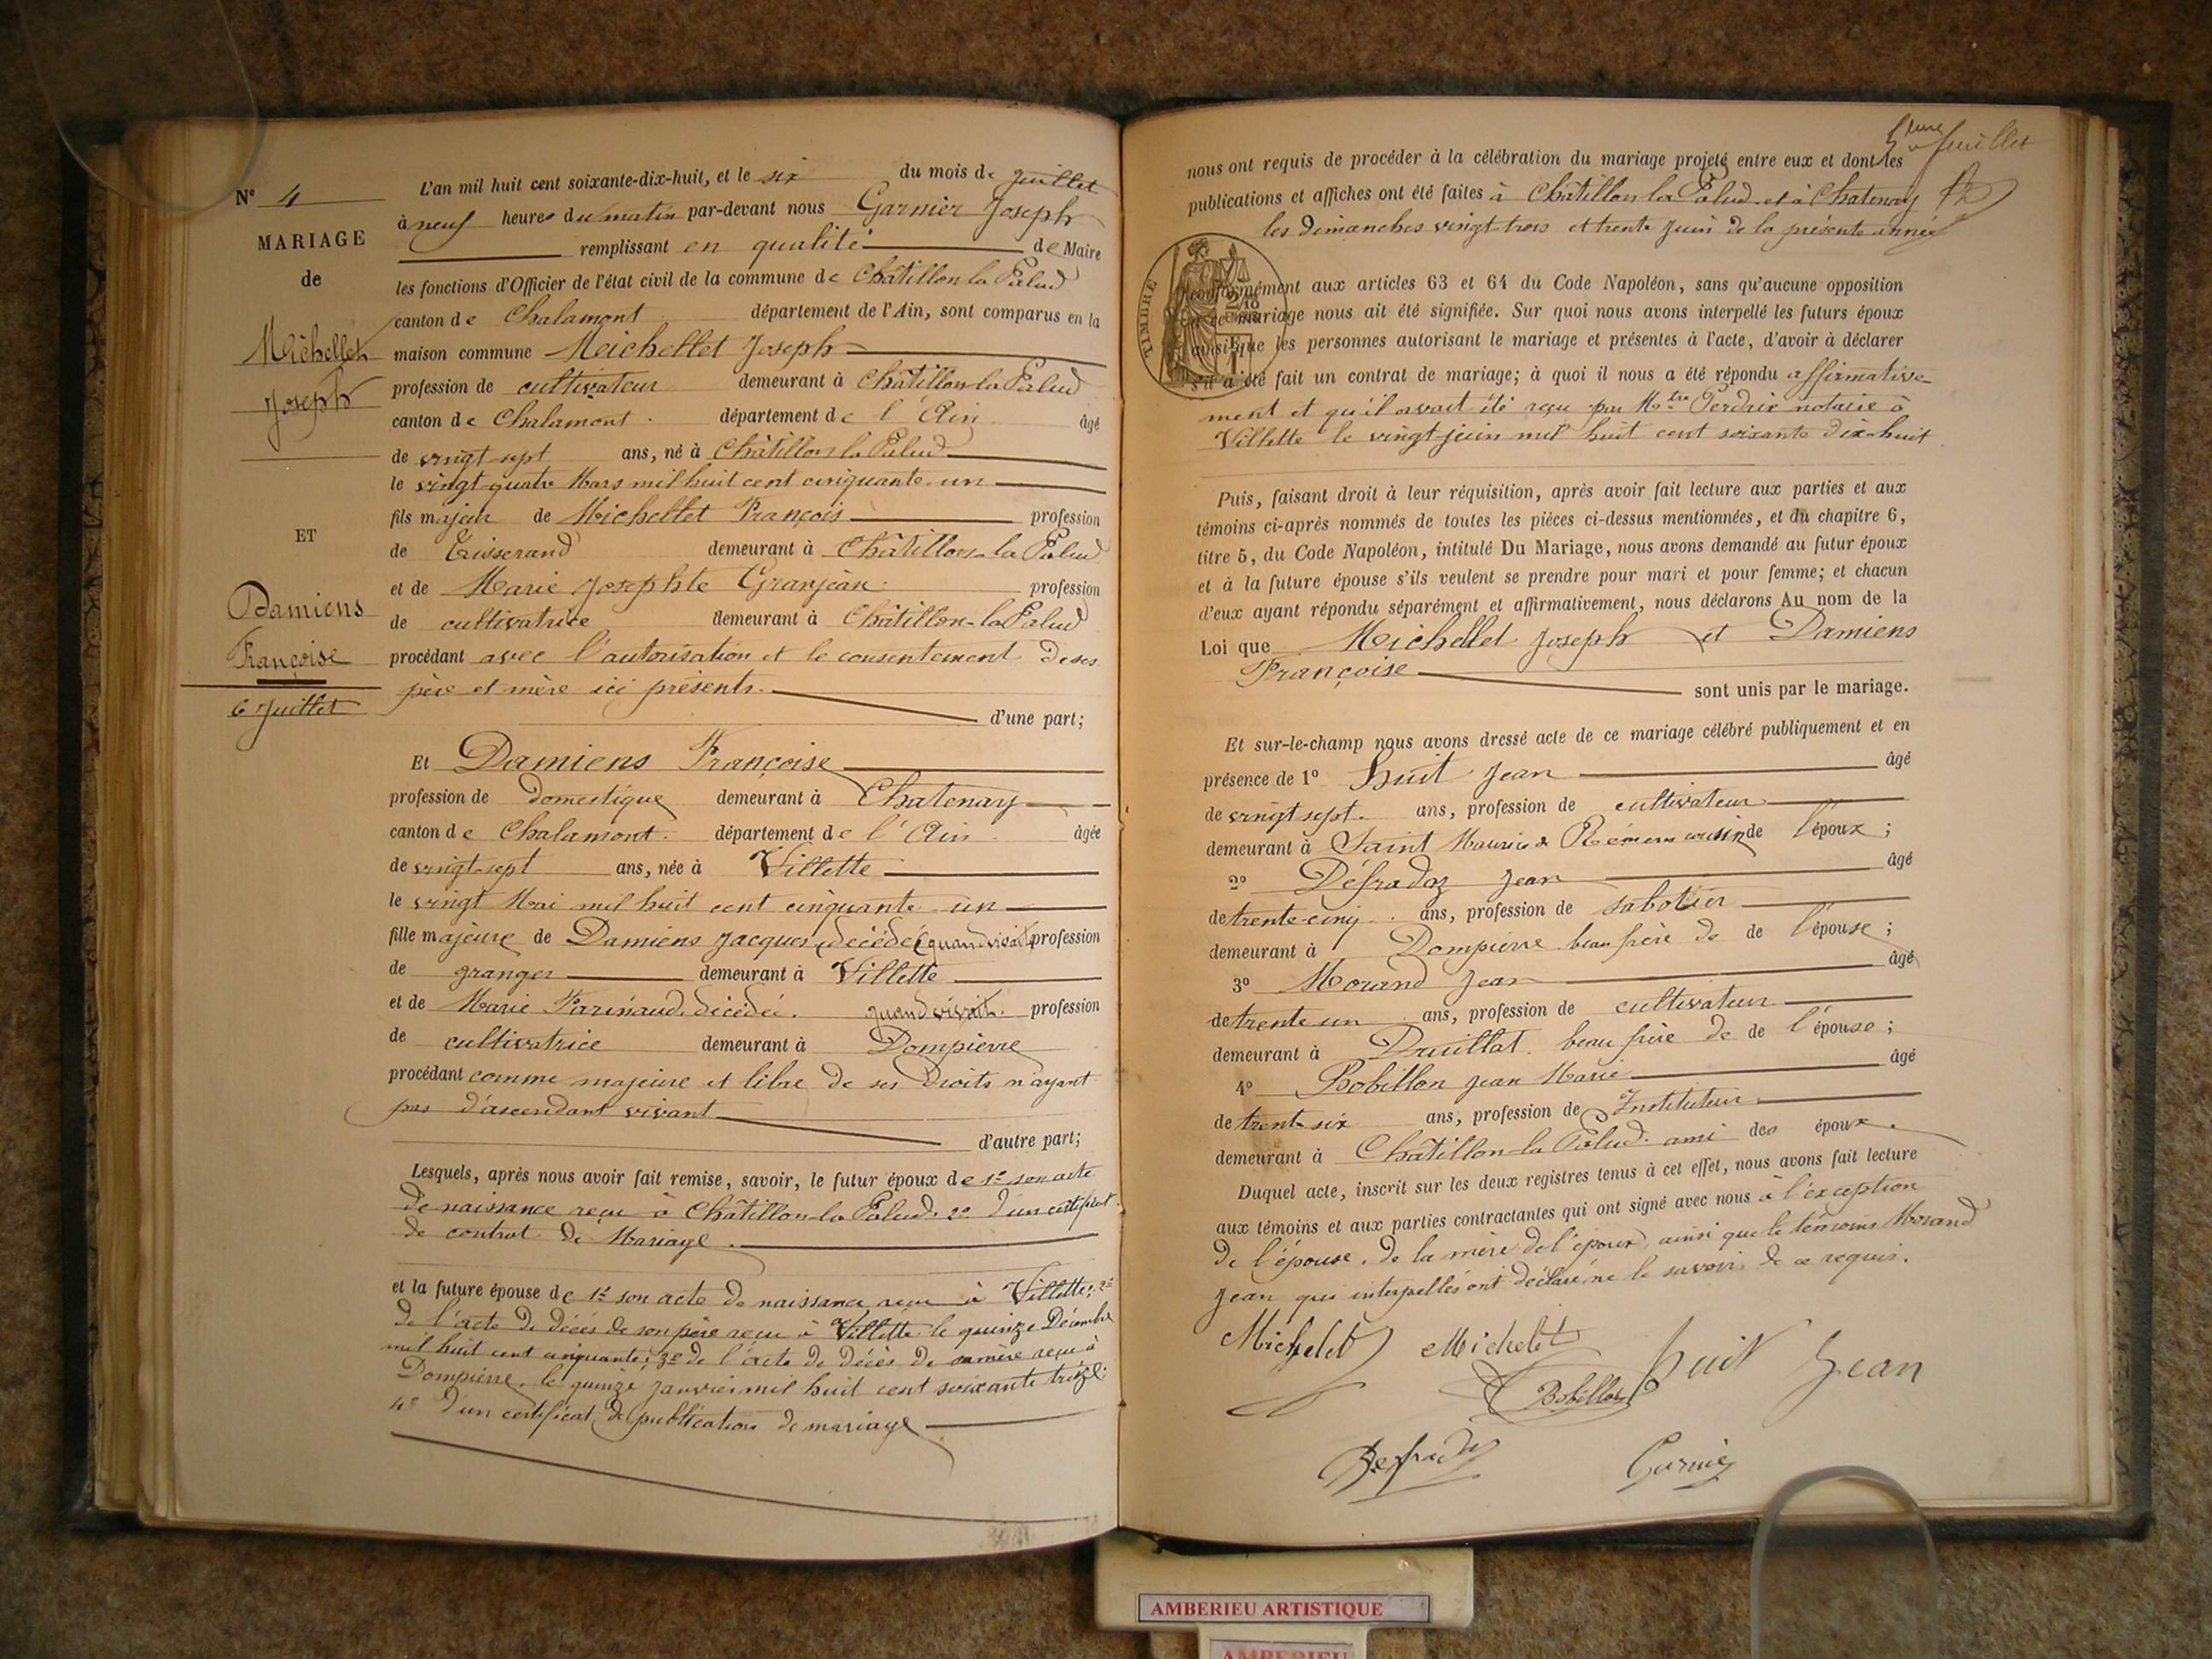 N° 4
MARIAGE
de
Michellet
Joseph
ET
Damiens
Françoise
6 Juillet
L'an mil huit cent soixante-dix-huit, et le six du mois de Juillet
à neuf heures du matin par-devant nous Garnier Joseph
remplissant en qualité de Maire
les fonctions d'Officier de l'état civil de la commune de Châtillon la Palud
canton de Chalamont département de l'Ain, sont comparus en la
maison commune Michellet Joseph
profession de cultivateur demeurant à Châtillon-la-Palud
canton de Chalamont. département de l'Ain âgé
de vingt sept ans, né à Châtillon la Palud
le vingt quatre Mars mil huit cent cinquante un
fils majeur de Michellet François profession
de Tisserand demeurant à Châtillon-la Palud
et de Marie Josephte Granjean profession
de cultivatrice demeurant à Châtillon-la Palud
procédant avec l'autorisation et le consentement de ses
père et mère ici présents.
d'une part;
Et Damiens Françoise
profession de domestique demeurant à Chatenay
canton de Chalamont. département de l'Ain âgée
de vingt-sept ans, née à Villette
le vingt Mai mil huit cent cinquante un
fille majeure de Damiens Jacques, décédé (quand vivait profession
de granger demeurant à Villette
et de Marie Farinaud, décédée. quand vivait. profession
de cultivatrice demeurant à Dompierre
procédant comme majeure et libre de ses droits n'ayant
pas d'ascendant vivant
d'autre part;
Lesquels, après nous avoir fait remise, savoir, le futur époux de 1° son acte
de naissance reçu à Châtillon-la Palud. 2° d'un certificat
de contrat de Mariage.
et la future épouse de 1° son acte de naissance reçu à Villette; 2°
de l'acte de décès de son père reçu à Villette le quinze Décembre
mil huit cent cinquante; 3° de l'acte de décès de sa mère reçu à
Dompierre, le quinze Janvier mil huit cent soixante treize;
4° d'un certificat de publications de mariage
5eme feuillet
nous ont requis de procéder à la célébration du mariage projeté entre eux et dont les
publications et affiches ont été faites à Châtillon la Palud et à Chatenay
les dimanches vingt trois et trente Juin de la présente année
TIMBRE
conformément aux articles 63 et 64 du Code Napoléon, sans qu'aucune opposition
mariage nous ait été signifiée. Sur quoi nous avons interpellé les futurs époux
ainsi que les personnes autorisant le mariage et présentes à l'acte, d'avoir à déclarer
s'il a été fait un contrat de mariage; à quoi il nous a été répondu affirmative-
ment et qu'il avait été reçu par Mtre Perdrix notaire à
Villette le vingt juin mil huit cent soixante dix-huit
Puis, faisant droit à leur réquisition, après avoir fait lecture aux parties et aux
témoins ci-après nommés de toutes les pièces ci-dessus mentionnées, et du chapitre 6,
titre 5, du Code Napoléon, intitulé Du Mariage, nous avons demandé au futur époux
et à la future épouse s'ils veulent se prendre pour mari et pour femme; et chacun
d'eux ayant répondu séparément et affirmativement, nous déclarons Au nom de la
Loi que Michellet Joseph et Damiens
Françoise
sont unis par le mariage.
Et sur-le-champ nous avons dressé acte de ce mariage célébré publiquement et en
présence de 1° Huit Jean âgé
de vingt sept. ans, profession de cultivateur
demeurant à Saint Maurice de Rémens cousin de l'époux;
2° Défradaz Jean âgé
de trente-cinq. ans, profession de sabotier
demeurant à Dompierre beau frère de de l'épouse;
3° Morand Jean âgé
de trente un ans, profession de cultivateur
demeurant à Druillat. beau frère de de l'épouse;
4° Bobillon Jean Marie âgé
de trente six ans, profession de Instituteur
demeurant à Châtillon-la Palud. ami des époux.
Duquel acte, inscrit sur les deux registres tenus à cet effet, nous avons fait lecture
aux témoins et aux parties contractantes qui ont signé avec nous à l'exception
de l'épouse, de la mère de l'époux, ainsi que le témoins Morand
Jean qui interpellés ont déclaré ne le savoir de ce requis.
Michelet Michelet Huit Jean
Bobillon
Defradaz Garnier
AMBERIEU ARTISTIQUE
AMBERIEU